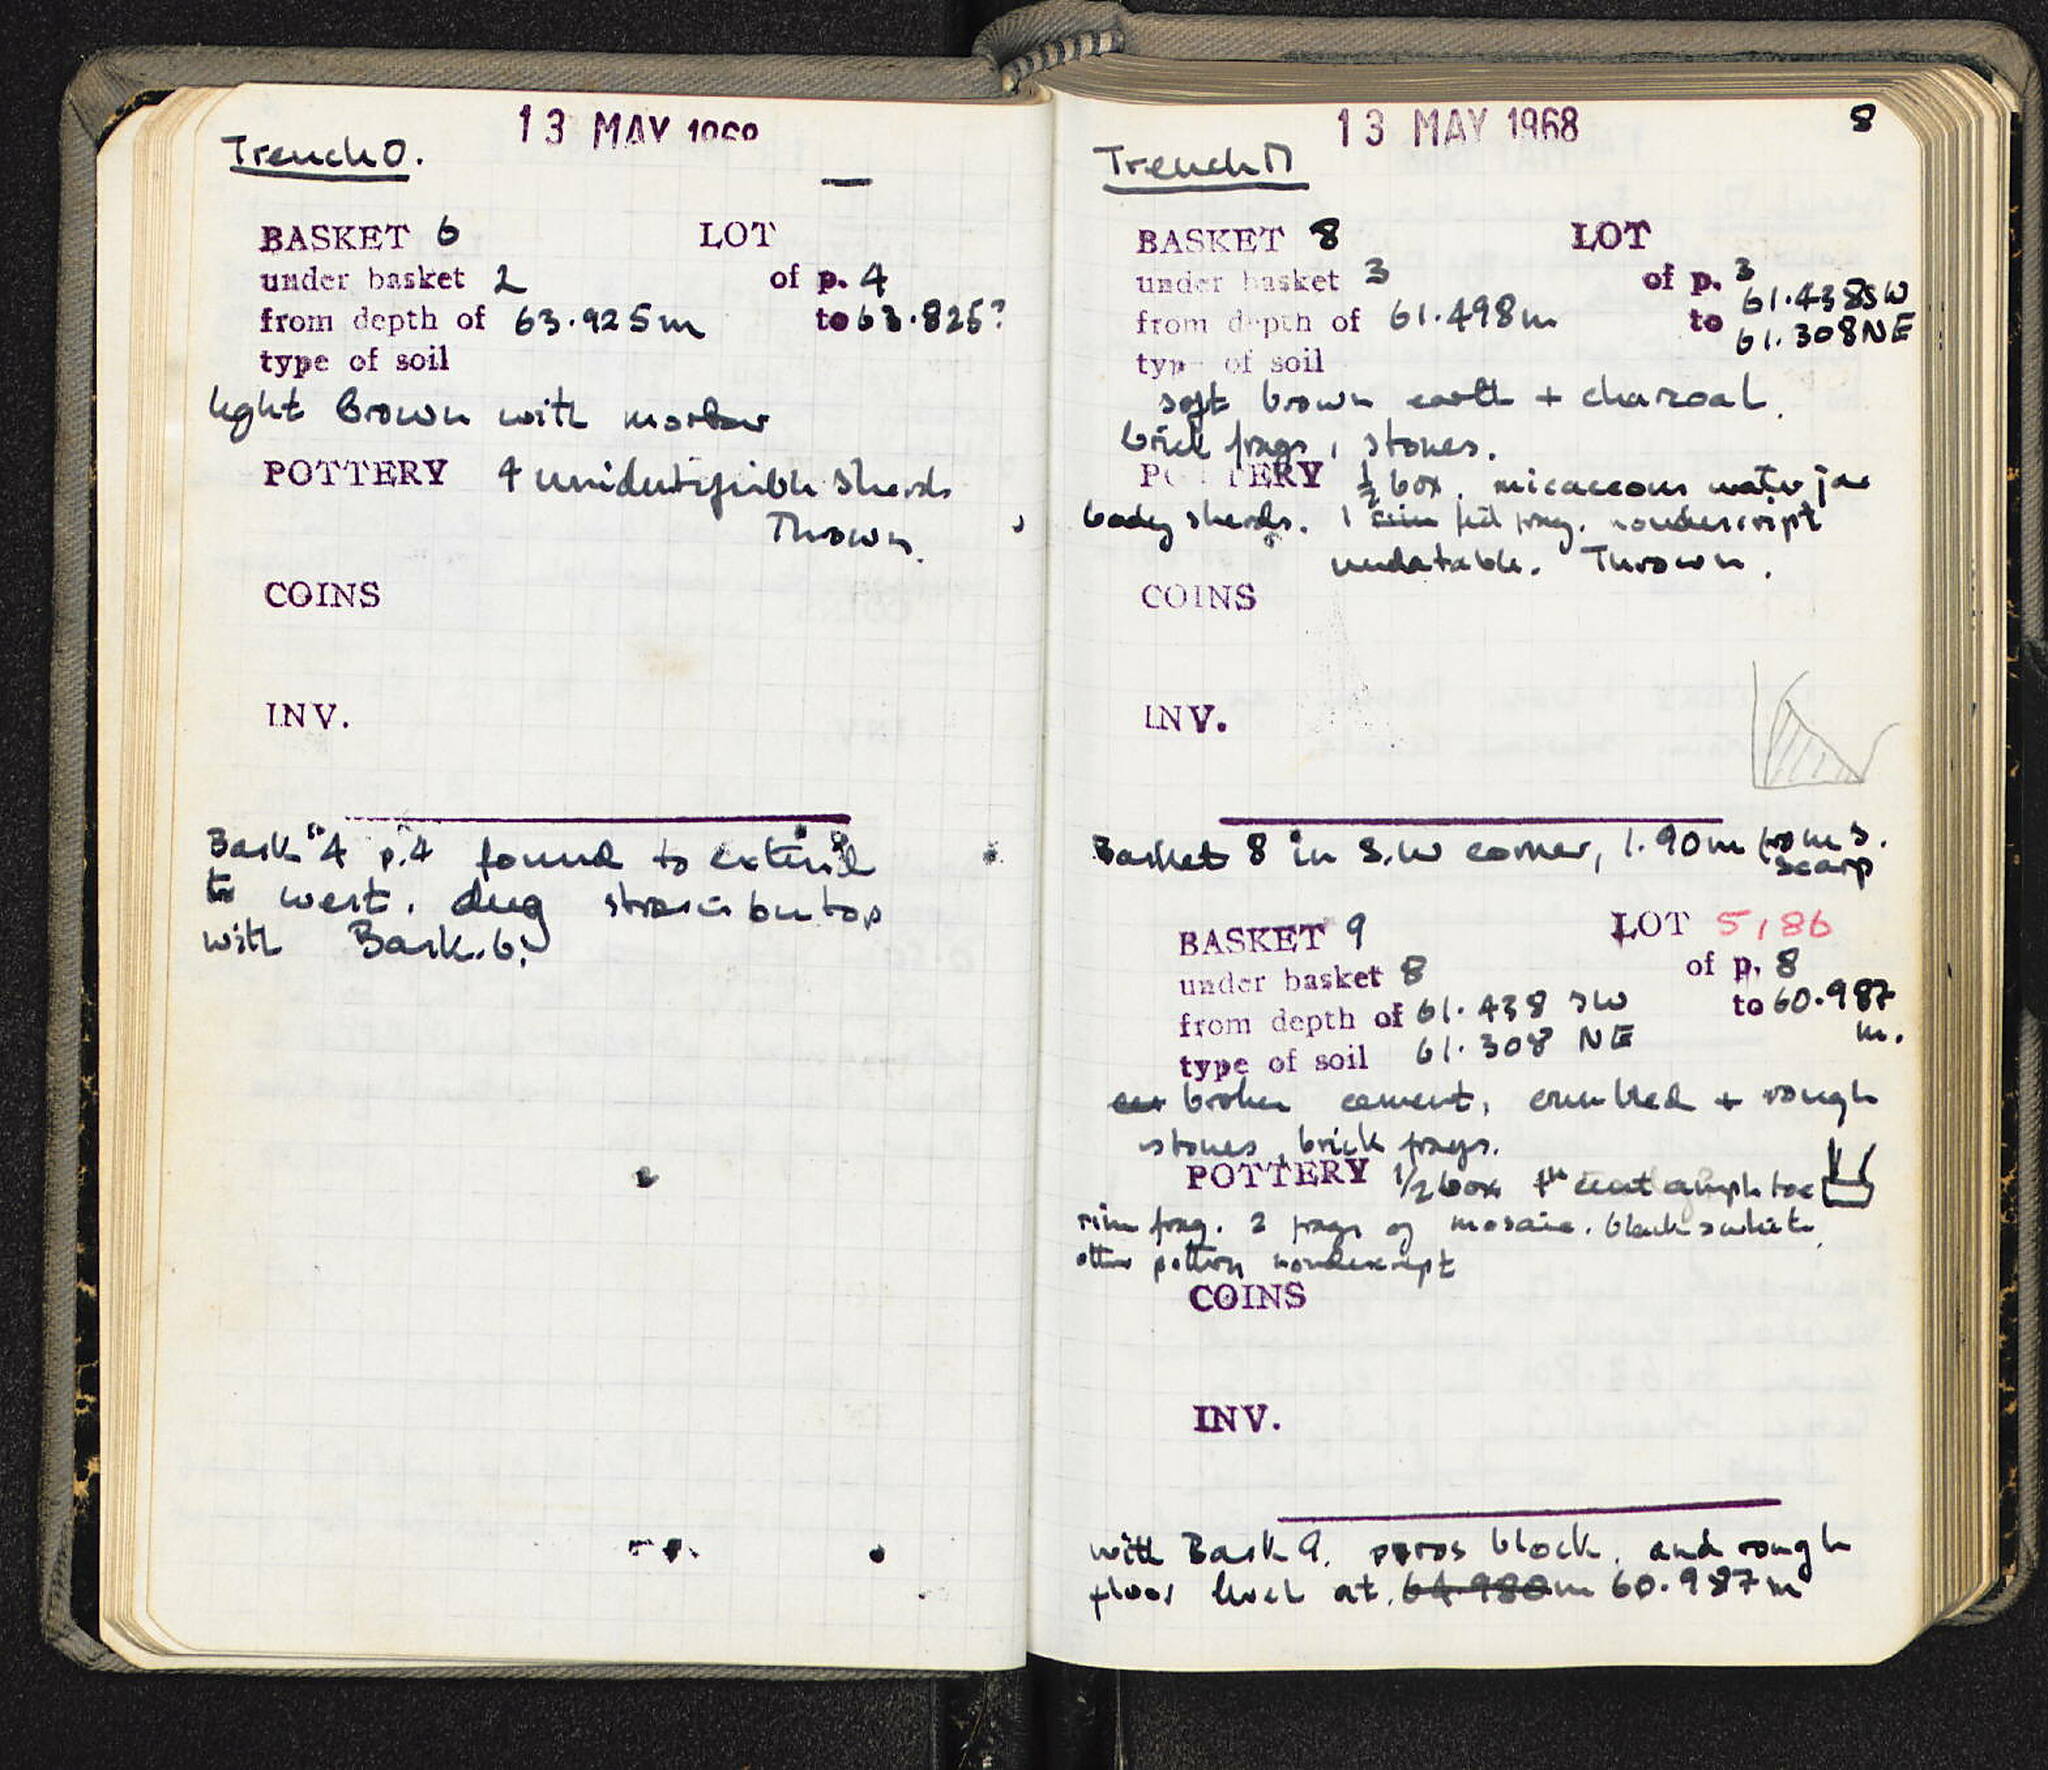 13 MAY 1968
Trench O.
BASKET 6 LOT
under basket 2 of p. 4
from depth of 63.925m to 63.825?
type of soil
light brown with mortar
POTTERY 4 unidentifiable sherds
Thrown.
COINS
INV.
Bask "4 p."4 found to extend
to west. dug strosis on top
with Bask. 6.
13 MAY 1968
8
Trench Π
BASKET 8 LOT
under basket 3 of p. 3
from depth of 61.498m to 61.438SW
61.308NE
type of soil
soft brown earth + charcoal.
brick frags, stones.
POTTERY ½ box. micaceous water jar
body sherds. 1 rim frag. nondescript
undatable. Thrown.
COINS
INV.
Basket 8 in S.W corner, 1.90m from S.
scarp
BASKET 9 LOT 5186
under basket 8 of p. 8
from depth of 61.438 SW to 60.987
m.
type of soil 61.308 NE
broken cement, crumbled + rough
stones, brick frags.
POTTERY 1/2 box cent amph toe
rim frag. 2 frags of mosaic. black & white.
other pottery nondescript
COINS
INV.
with Bask 9. poros block. and rough
floor level at. 64.980m 60.987m